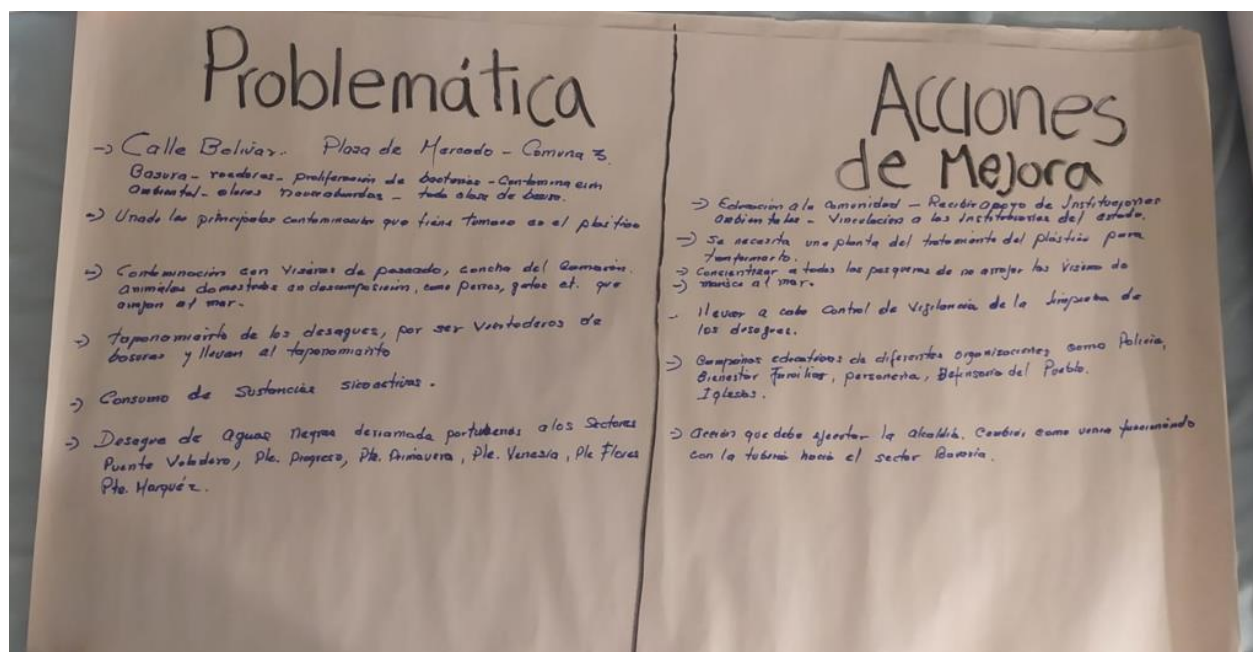 Problemática
-> Calle Bolivar. Plaza de Mercado - Comuna 3.
Basura - roedores - proliferación de bacterias - Contaminación
ambiental - olores - toda clase de
-> Una de las principales contaminación que tiene Tumaco es el plástico
-> Contaminación con Viseras de pescado, concha del Camarón.
animales domesticos en descomposición, como perros, gatos et. que
arrojan al mar.
-> taponamiento de los desagues, por ser de
basuras y llevan al taponamiento
-> Consumo de Sustancias sicoactivas.
-> Desague de aguas negras derramada por tuberias a los Sectores
Puente Voladero, Pte. Progreso, Pte. Primavera, Pte. Venesia, Pte Flores
Pte. Marquéz.
Acciones
de Mejora
-> Educación a la Comunidad - Recibir apoyo de Instituciones
ambientales - Vinculación a las Instituciones del estado.
-> Se necesita una planta del tratamiento del plástico para
-> Concientizar a todas las pesqueras de no arrojar las de
-> marisco al mar.
- llevar a cabo Control de Vigilancia de la de
los desagues.
-> Campañas educativas de diferentes organizaciones como Policia,
Bienestar Familiar, personeria, Defensoria del Pueblo.
Iglesias.
-> acción que debe ejecutar la alcaldia. Cambiar como venia funcionando
con la tuberia hacia el sector Bavaria.